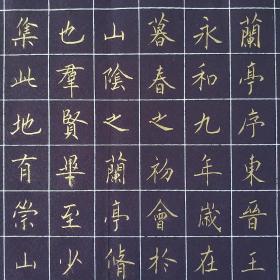 蘭亭序東晉王
永和九年歲在
暮春之初會於
山陰之蘭亭脩
也羣賢畢至少
集此地有崇山